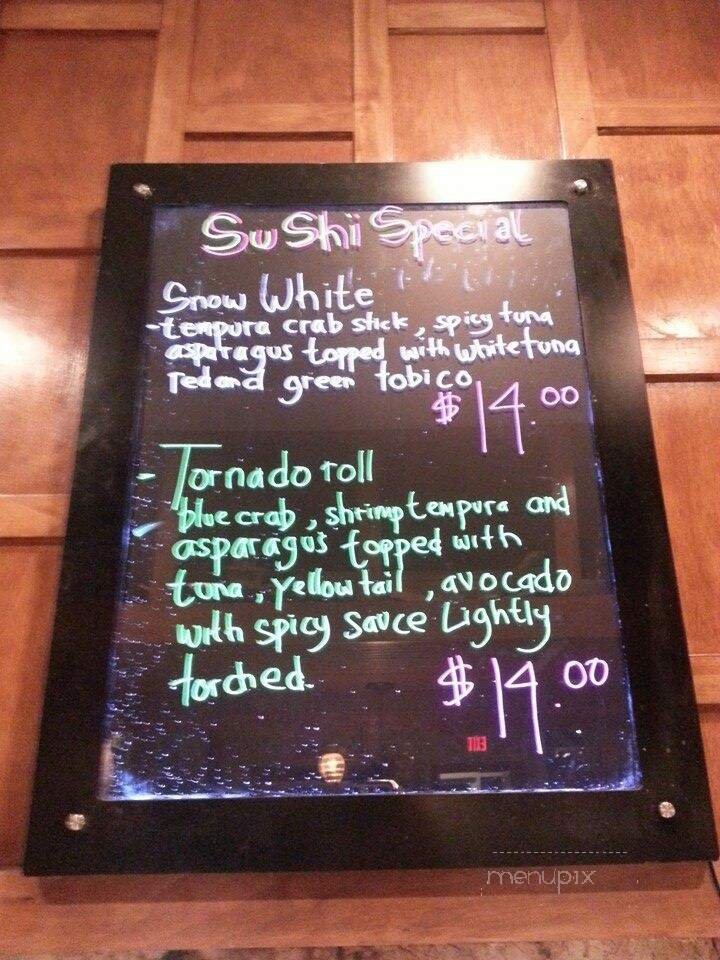 SuShi Special
Snow White
-tempura crab stick, spicy tuna
asparagus topped with white tuna
red and green tobico
$14.00
- Tornado roll
blue crab, shrimp tempura and
- asparagus topped with
tuna, yellow tail, avocado
with spicy sauce Lightly
torched.
$14.00
EXIT
menupix